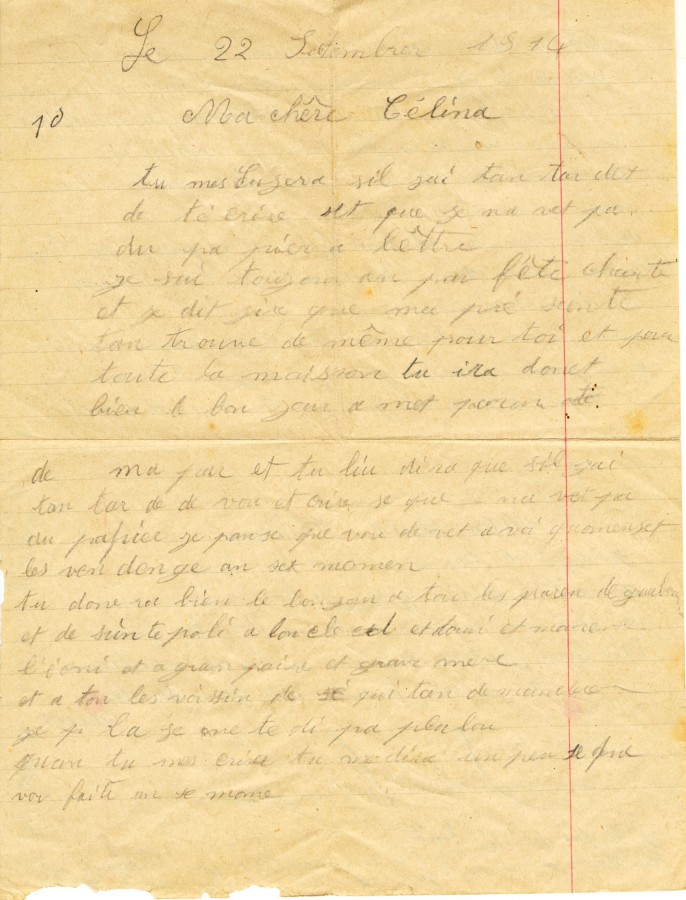 Le 22 Setembre 1914
10 Ma chère Célina
tu mes Lusera sil jai tan tar det
de té crire set que je na vet pa
du pa pier a lêttre
je sui toujour an par fête
et je dit que ma
tan trouve de même pour toi et pour
toute la maission tu ira donet
bien le bon jour a met paran
de ma par et tu liu dira que sil jai
tan tar de de vou et crire se que na vet pa
du papiee je panse que vou de vet a voi quomenset
les ven denge an set momen
tu done ra bien le bon jour a tou les paren de
et de sinte polé a loncle et et
et a gran paire et grave mere
et a tou les voissin de sé qui tan demande
je La je ne te di pa plu lou
quan tu mes crira tu me dira un peu se que
vou faite an se mome